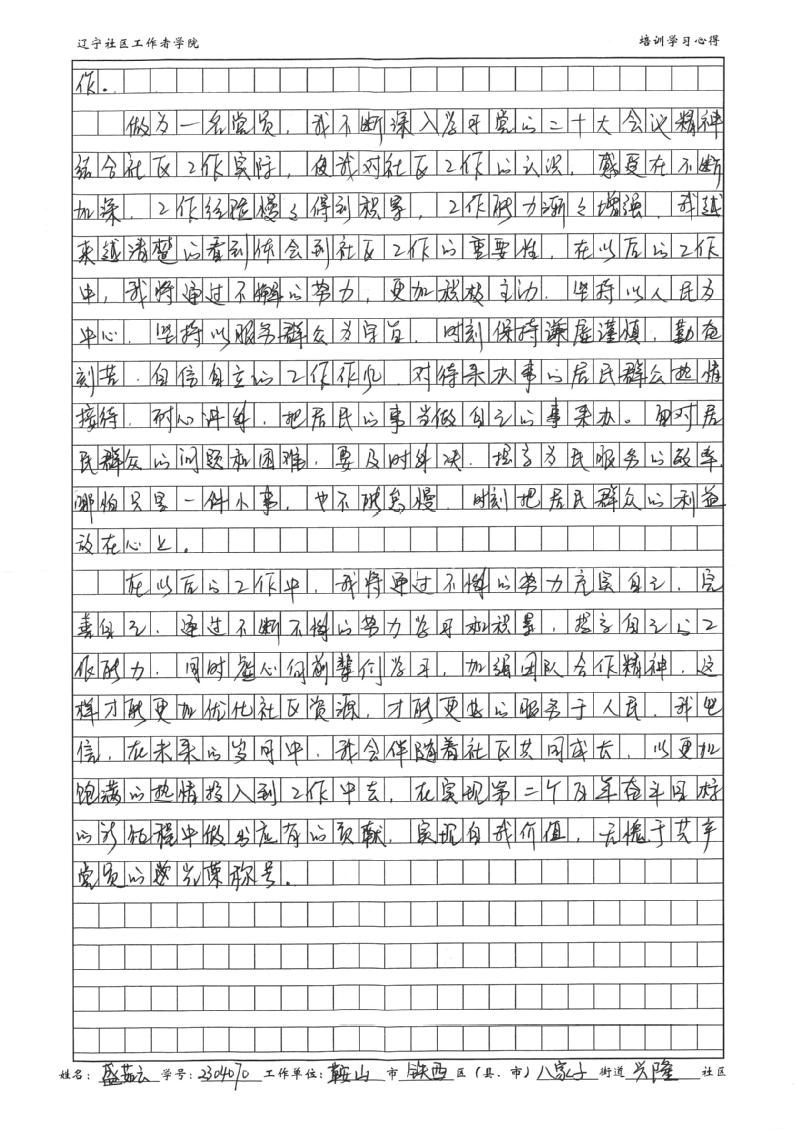 辽宁社区工作者学院 培训学习心得
作。
做为一名党员，我不断深入学习党的二十大会议精神
结合社区工作实际，使我对社区工作的认识，感受在不断
加深，工作经验慢々得到积累，工作能力渐々增强，我越
来越清楚的看到体会到社区工作的重要性，在以后的工作
中，我将通过不懈的努力，更加积极主动，坚持以人民为
中心，坚持以服务群众为宗旨，时刻保持谦虚谨慎，勤奋
刻苦，自信自立的工作作风，对待来办事的居民群众热情
接待，耐心讲解，把居民的事当做自己的事来办。面对居
民群众的问题和困难，要及时解决，提高为民服务的效率，
哪怕只是一件小事，也不能怠慢，时刻把居民群众的利益
放在心上。
在以后的工作中，我将通过不懈的努力充实自己，完
善自己，通过不断不懈的努力学习和积累，提高自己的工
作能力，同时虚心向前辈们学习，加强团队合作精神，这
样才能更加优化社区资源，才能更好的服务于人民，我也
信，在未来的岁月中，我会伴随着社区共同成长，以更加
饱满的热情投入到工作中去，在实现第二个百年奋斗目标
的新征程中做出应有的贡献，实现自我价值，无愧于共产
党员的光荣称号。
姓名：盛茹云 学号：2304070 工作单位：鞍山 市 铁西 区（县、市）八家子 街道 兴隆 社区